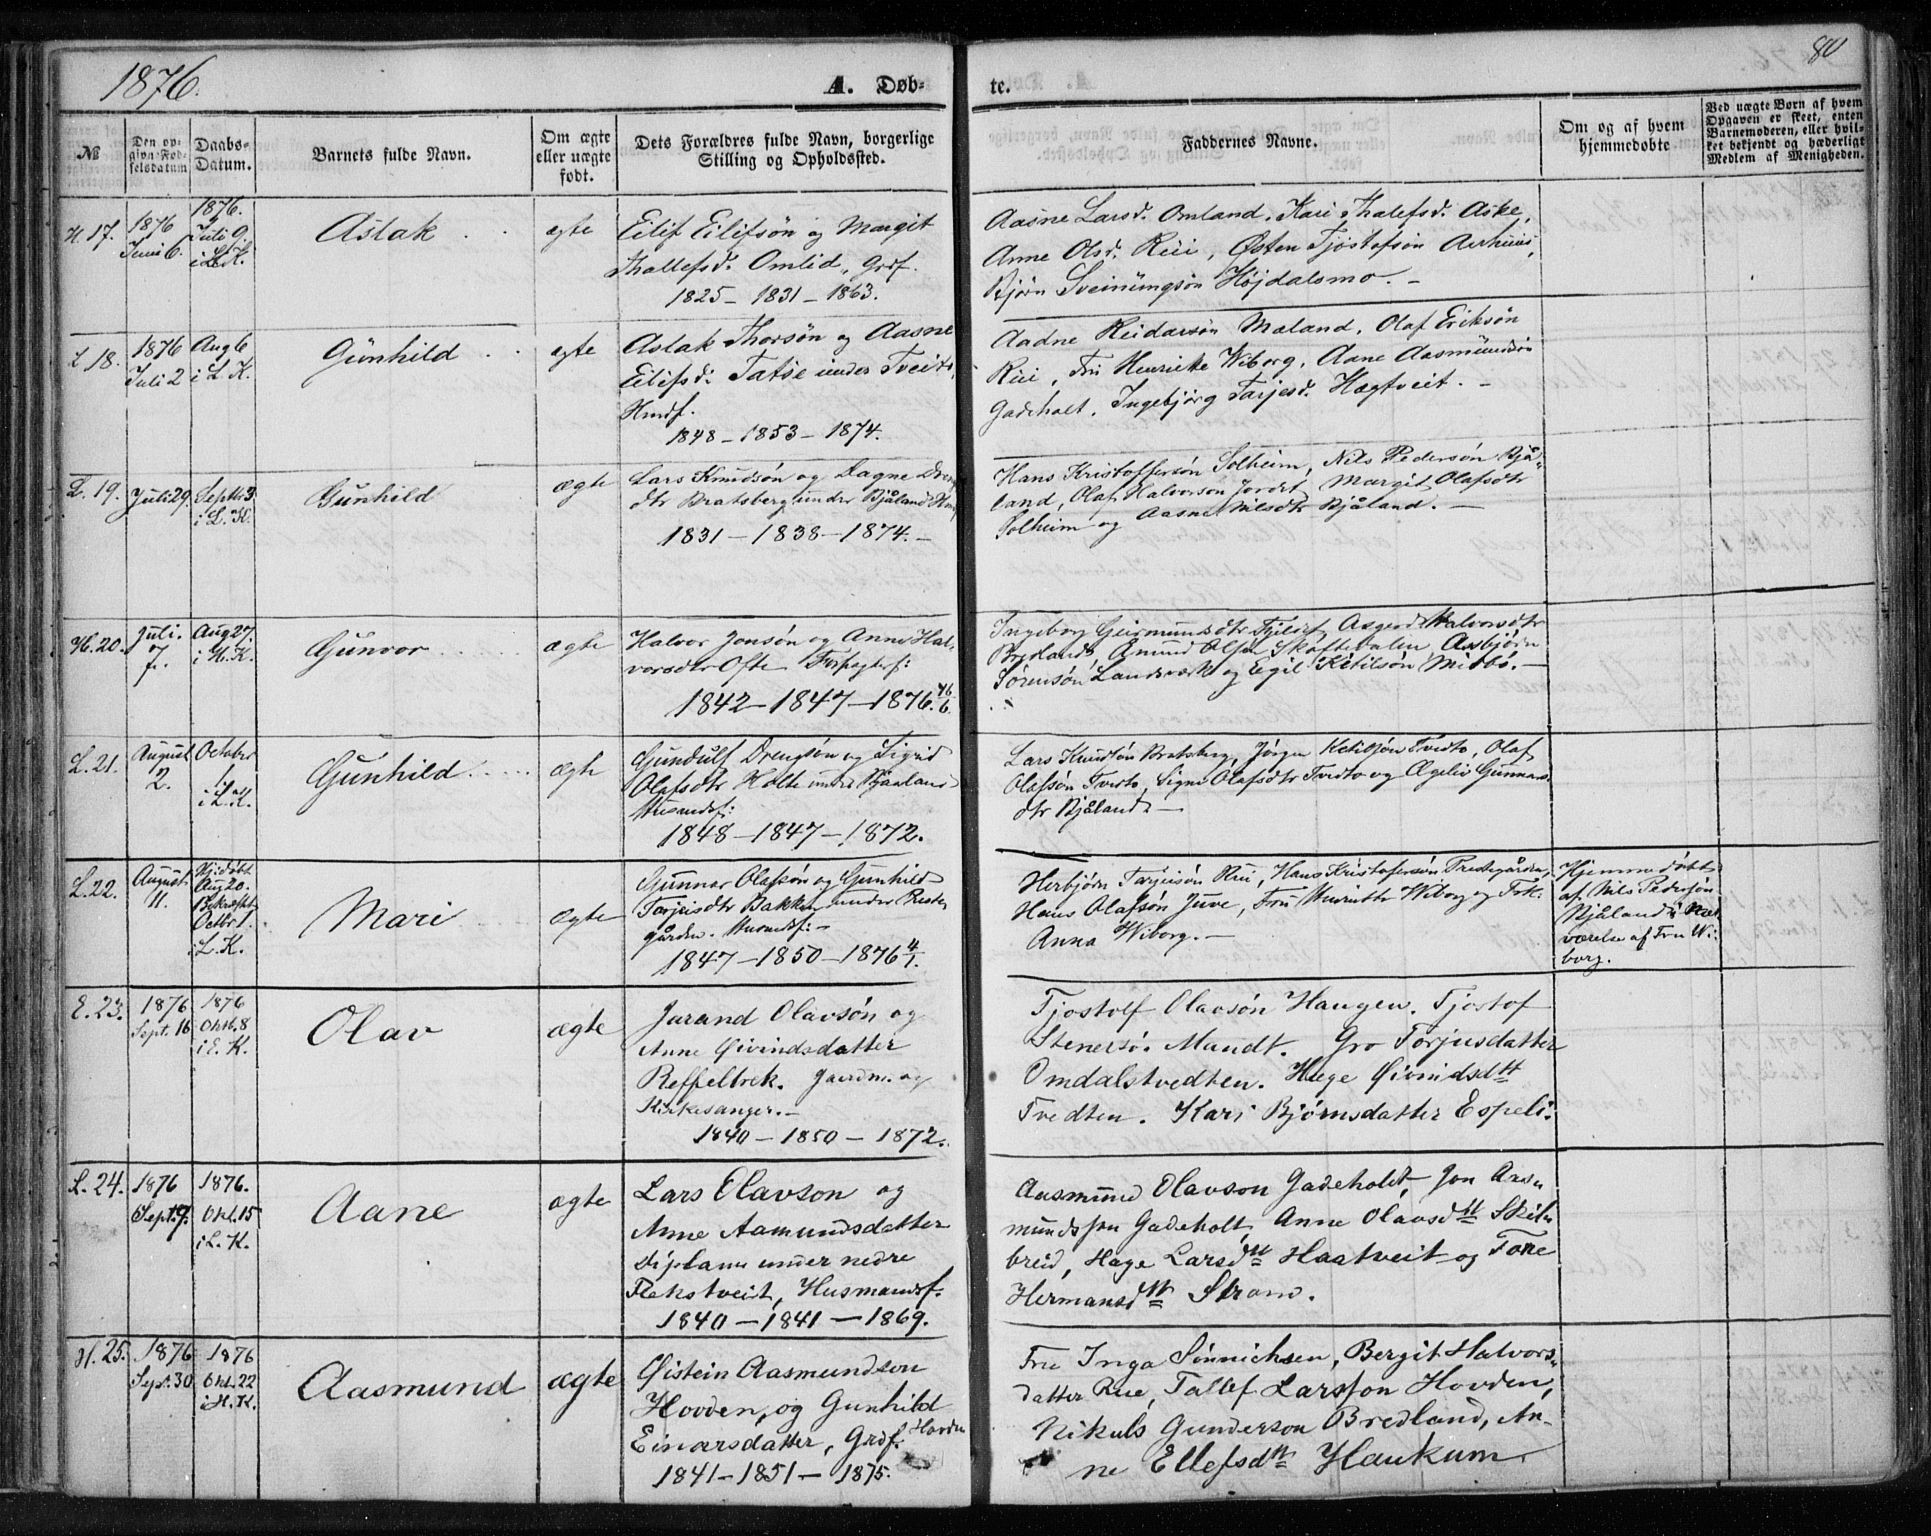 1876.
A. Døb-
te.
80
№
Den op-
givne Fød-
selsdatum
Daabs-
Datum.
Barnets fulde Navn.
Om ægte
eller uægte
født.
Dets Forældres fulde Navn, borgerlige
Stilling og Opholdssted.
Faddernes Navne.
Om og af hvem
hjemmedøbte
Ved uægte Børn af hvem
Opgaven er skeet, enten
Barnemoderen, eller hvil-
ket bekjendt og hæderligt
Medlem af Menigheden.
H. 17.
1876
Juni 6.
1876.
Juli 9
i L. K.
Aslak
ægte
Eilif Eilifsøn og Margit
Thallefsd. Omlid, Grdf.
1825 - 1831 - 1863.
Aasne Larsd. Omland, Kari Thalefsd. Aske,
Anne Olsd. Rui, Østen Tjøstofsøn Aarhuus,
Bjørn Sveinungsøn Højdalsmo. -
L 18.
1876
Juli 2
Aug 6
i L K.
Gunhild
ægte
Aslak Thorsøn og Aasne
Eilifsd. Tatse under Tveito,
Hmdf.
1848 - 1853 - 1874.
Aadne Reidarsøn Mæland, Olaf Eriksøn
Rui, Fru Henriette Wiborg, Aane Aasmundsøn
Gadeholt, Ingebjørg Tarjesd. Hægtveit. -
L. 19.
Juli 29.
Septbr 3
i L. K.
Gunhild
ægte
Lars Knudsøn og Dagne Dreng
dtr Bratsberg under Bjåland Hmf
1831 - 1838 - 1874. -
Hans Kristoffersøn Solheim, Nils Pedersøn Bjå-
land, Olaf Halvorsøn Jordet, Margit Olafsdtr
Solheim og Aasne Nilsdtr Bjåland. -
H. 20.
Juli.
7.
Aug 27.
i H. K.
Gunvor
ægte
Halvor Jonsøn og Anne Hal-
vorsdtr Ofte Forpagterf:
1842 - 1847 - 1876.
Ingeborg Geirmundsdtr Fjeldet, Asgerd Halvorsdtr
Brydland, Amund Olsøn Skaftedalen, Asbjørn
Sørensøn Landsværk og Egil Ketilsøn Midbø. -
L. 21.
August
2.
October
1.
i L. K.
Gunhild
ægte
Gundulf Drengsøn og Sigrid
Olafsdtr Holte under Bjaaland
Husmdsf:
1848 - 1847 - 1872.
Lars Knudsøn Bratsberg, Jørgen Ketilsøn Tvedto, Olaf
Olafsøn Tvedto, Signe Olafsdtr Tvedto og Ægeliv Gunnars
dtr Bjåland -
L. 22.
August
11.
Hj.døbt
Aug 20.
Bekræftet
Octbr 1.
i L. K.
Mari
ægte
Gunnar Olafsøn og Gunhild
Torjeisdtr Bakken under Præste
gården. Husmdsf: -
1847 - 1850 - 1876 4/1.
Herbjørn Tarjeisøn Rui, Hans Kristofersøn Prestegården,
Hans Olafsøn Juve, Fru Henriette Wiborg og Frk.
Anna Wiborg. -
Hjemmedøbt
af Nils Pedersøn
Bjåland i Nær
værelse af Fru Wi-
borg.
E. 23.
1876
Sept. 16
1876
Oktb. 8
i E. K.
Olav
ægte
Jarand Olavsøn og
Anne Øivindsdatter
Reffelbrek. Gaardm. og
Kirkesanger. -
1840 - 1850 - 1872.
Tjostolf Olavsøn Haugen. Tjostof
Stenersøn Mandt. Gro Torjusdatter
Omdalstvedten. Hæge Øivindsdtt
Tvedten. Kari Bjørnsdatter Espeli.
L. 24.
1876
Sept. 9.
1876.
Okt. 15
i L. K.
Aane
ægte
Lars Olavson og
Anne Aamundsdatter
Diplann under nedre
Flekstveit, Husmandsf.
1840 - 1841 - 1869.
Aasmund Olavson Gadeholt, Jon Aas-
mundsson Gadeholt, Anne Olavsdtt Skil-
breid, Hæge Larsdtt Haatveit og Tone
Hermansdtt Strand.
H. 25.
1876
Sept. 30
1876
Okt. 22
i H. K.
Aasmund
ægte
Øistein Aasmundson
Hovden, og Gunhild
Einarsdatter, Grdf. Hovden
1841 - 1851 - 1875.
Fru Inga Sønnichsen, Bergit Halvors-
datter Rue, Tallef Larsson Hovden,
Nikuls Gunderson Bredland, An-
ne Ellefsdtt Haukum.